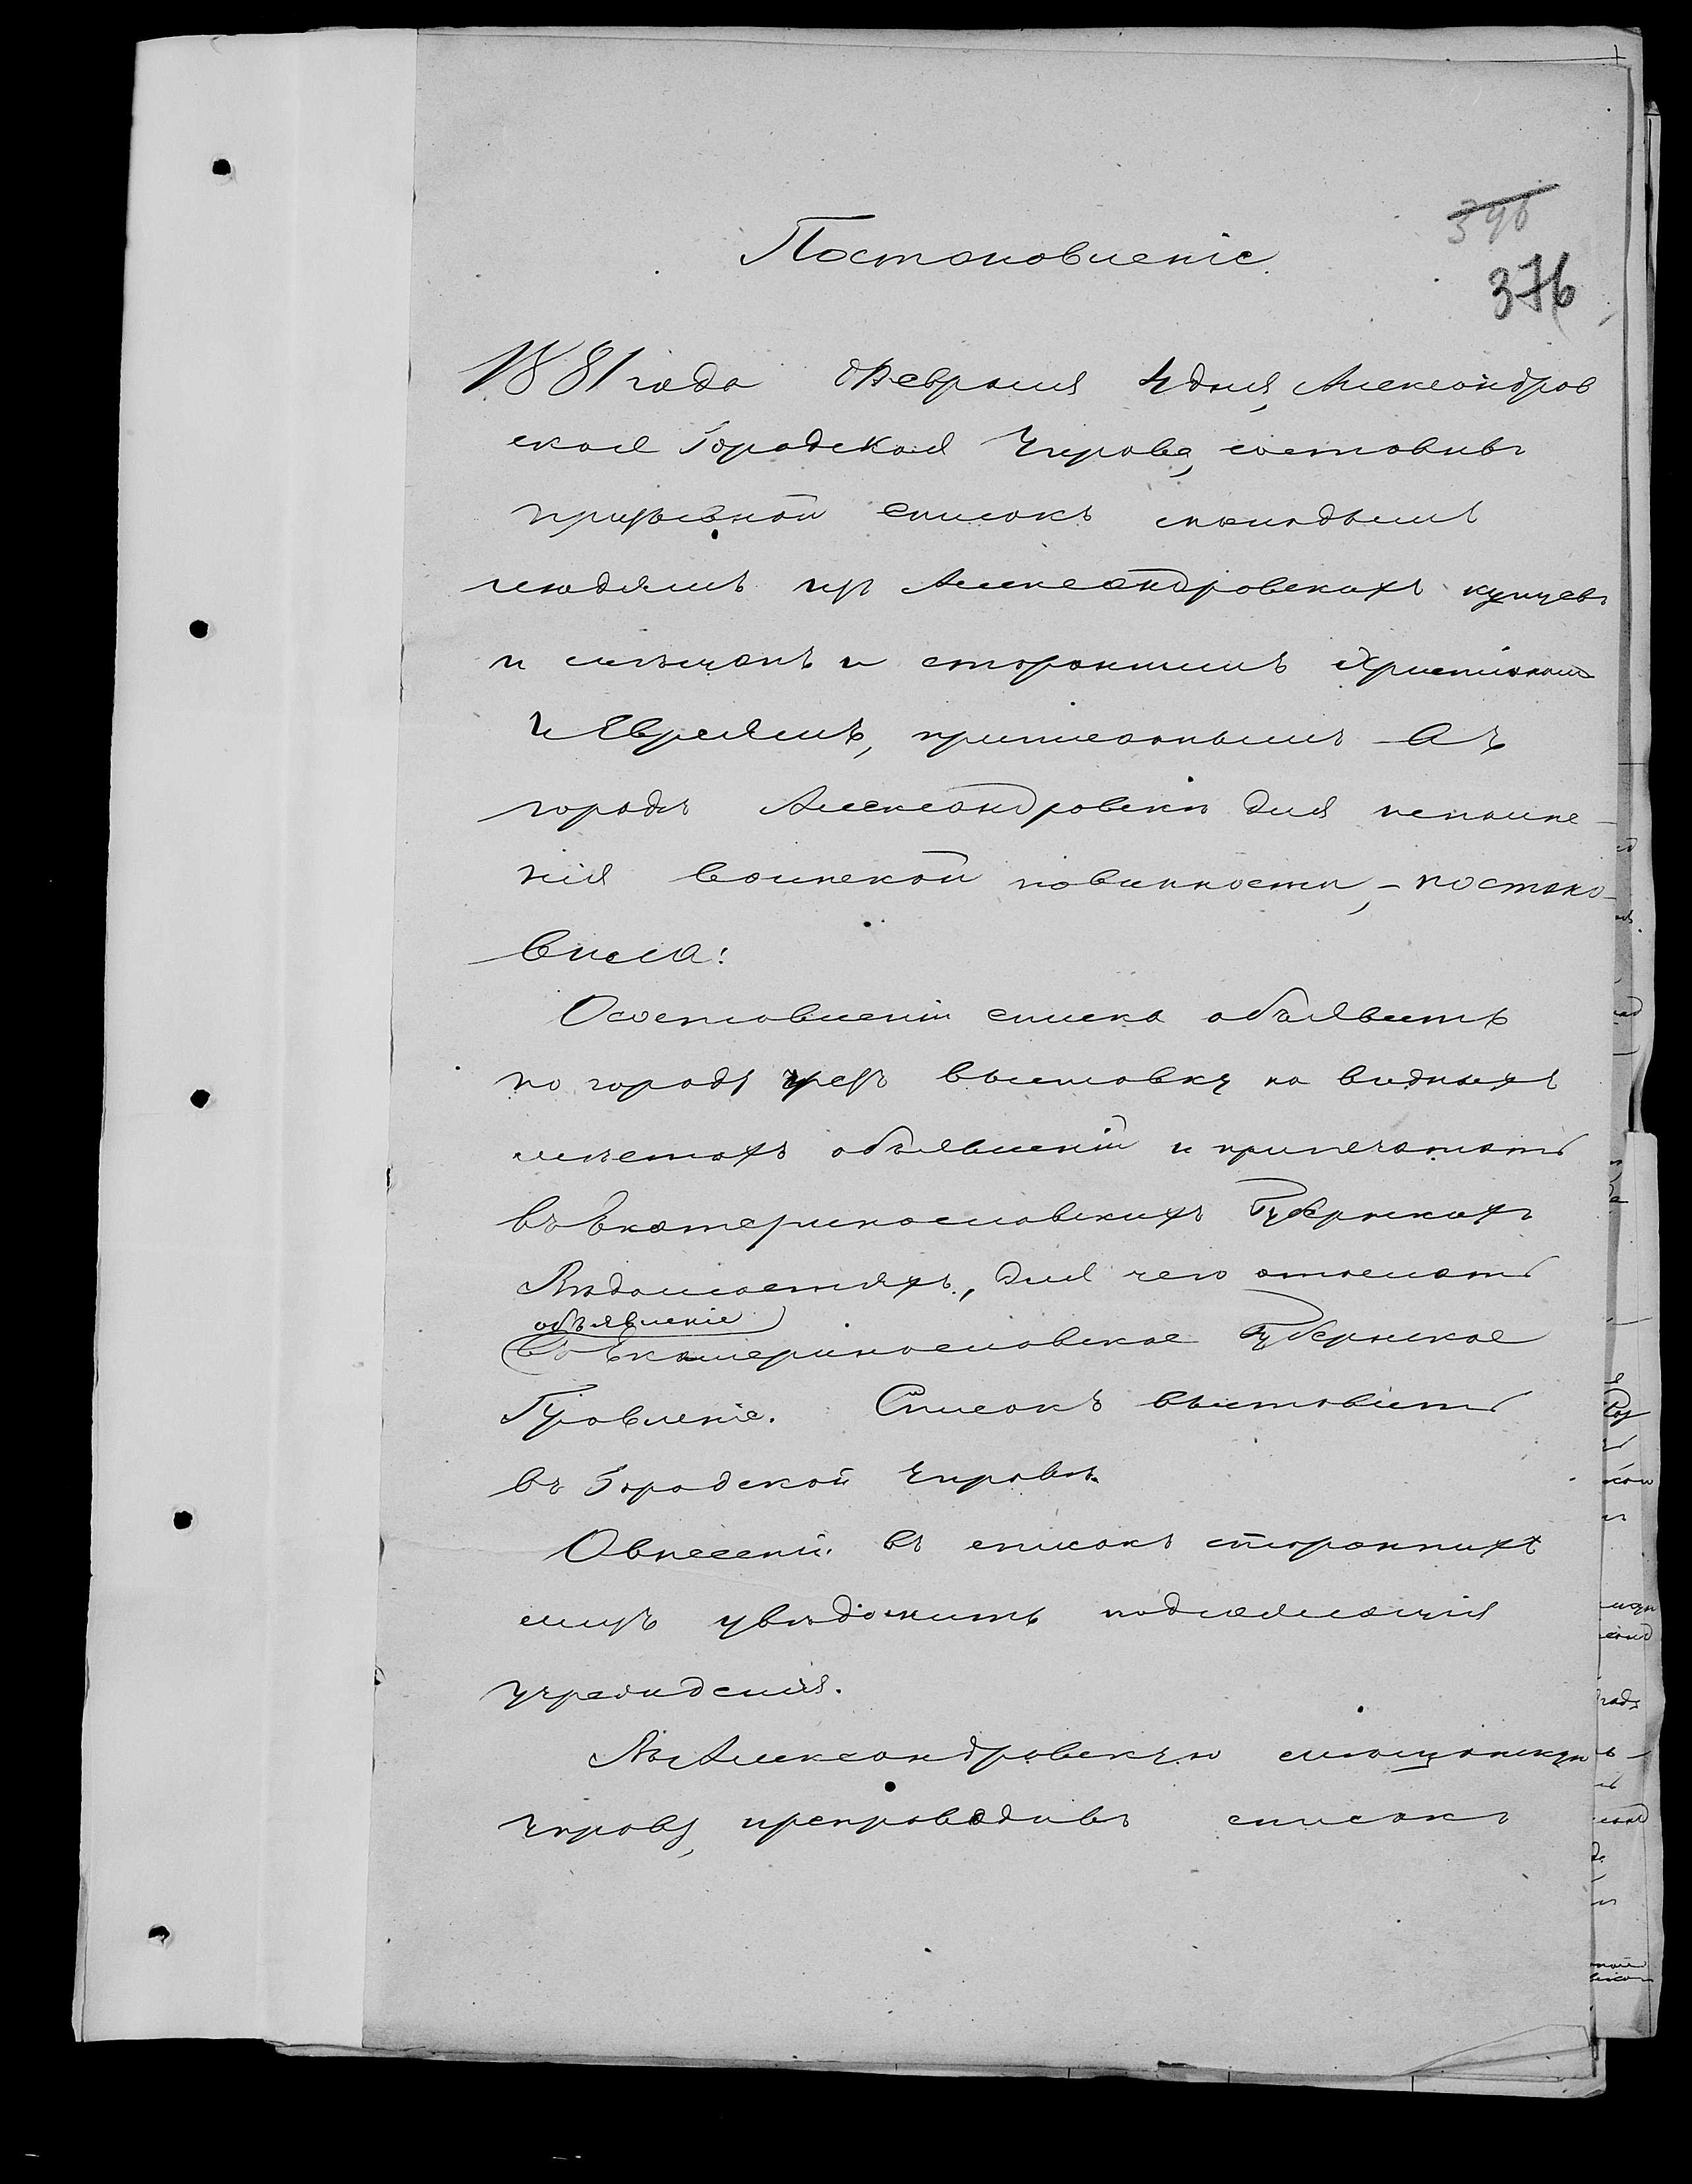 396
376
Постановленіе
1881 года Февраля 4 дня, Александров
ская Городская Управа, составивъ
призывной списокъ молодымъ
людямъ изъ Александровскихъ купцевъ
и мѣщанъ и стороннимъ Христіанамъ
и Евреямъ, приписаннымъ къ
городу Александровску для исполне-
нія воинской повинности, - постано-
вила:
О составленіи списка объявить
по городу чрезъ выставку на видныхъ
мѣстахъ объявленій и припечатать
въ Екатеринославскихъ Губернскихъ
Вѣдомостяхъ, для чего отослать
объявленіе
въ Екатеринославское Губернское
Правленіе. Списокъ выставить
въ Городской Управѣ.
О внесеніи въ списокъ стороннихъ
лицъ увѣдомить подлежащія
учрежденія.
Въ Александровскую мѣщанскую
управу, препроводивъ списокъ